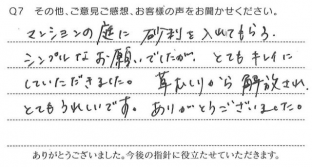 Q7 その他、ご意見ご感想、お客様の声をお聞かせください。
マンションの庭に 砂利を入れてもらう。
シンプルなお願いでしたが、とてもキレイに
していただきました。 草むしりから解放され、
とてもうれしいです。 ありがとうございました。
ありがとうございました。今後の指針に役立たせていただきます。